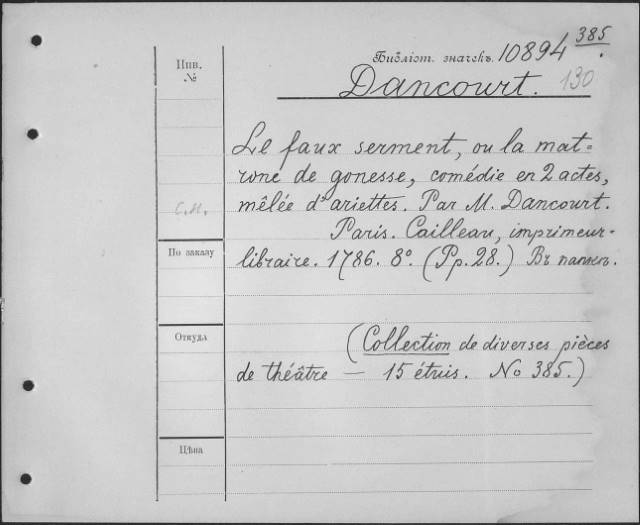 Инв. №
Библіот. значекъ. 10894 385.
Dancourt. 130
Le faux serment, ou la mat=
rone de gonesse, comédie en 2 actes,
mêlée d'ariettes. Par M. Dancourt.
С.М.
Paris. Cailleau, imprimeur-
По заказу
libraire. 1786. 8º. (Pp. 28.) Въ папкѣ.
Откуда
(Collection de diverses pièces
de théâtre — 15 étuis. No 385.)
Цѣна